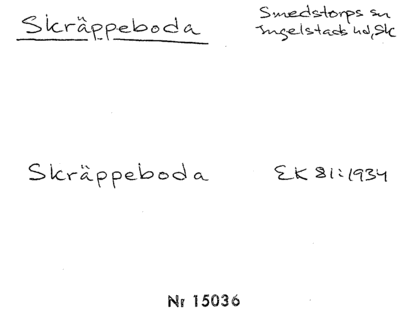 Skräppeboda
Smedstorps sn
Ingelstads hd, Sk
Skräppeboda
EK 81:1934
Nr 15036